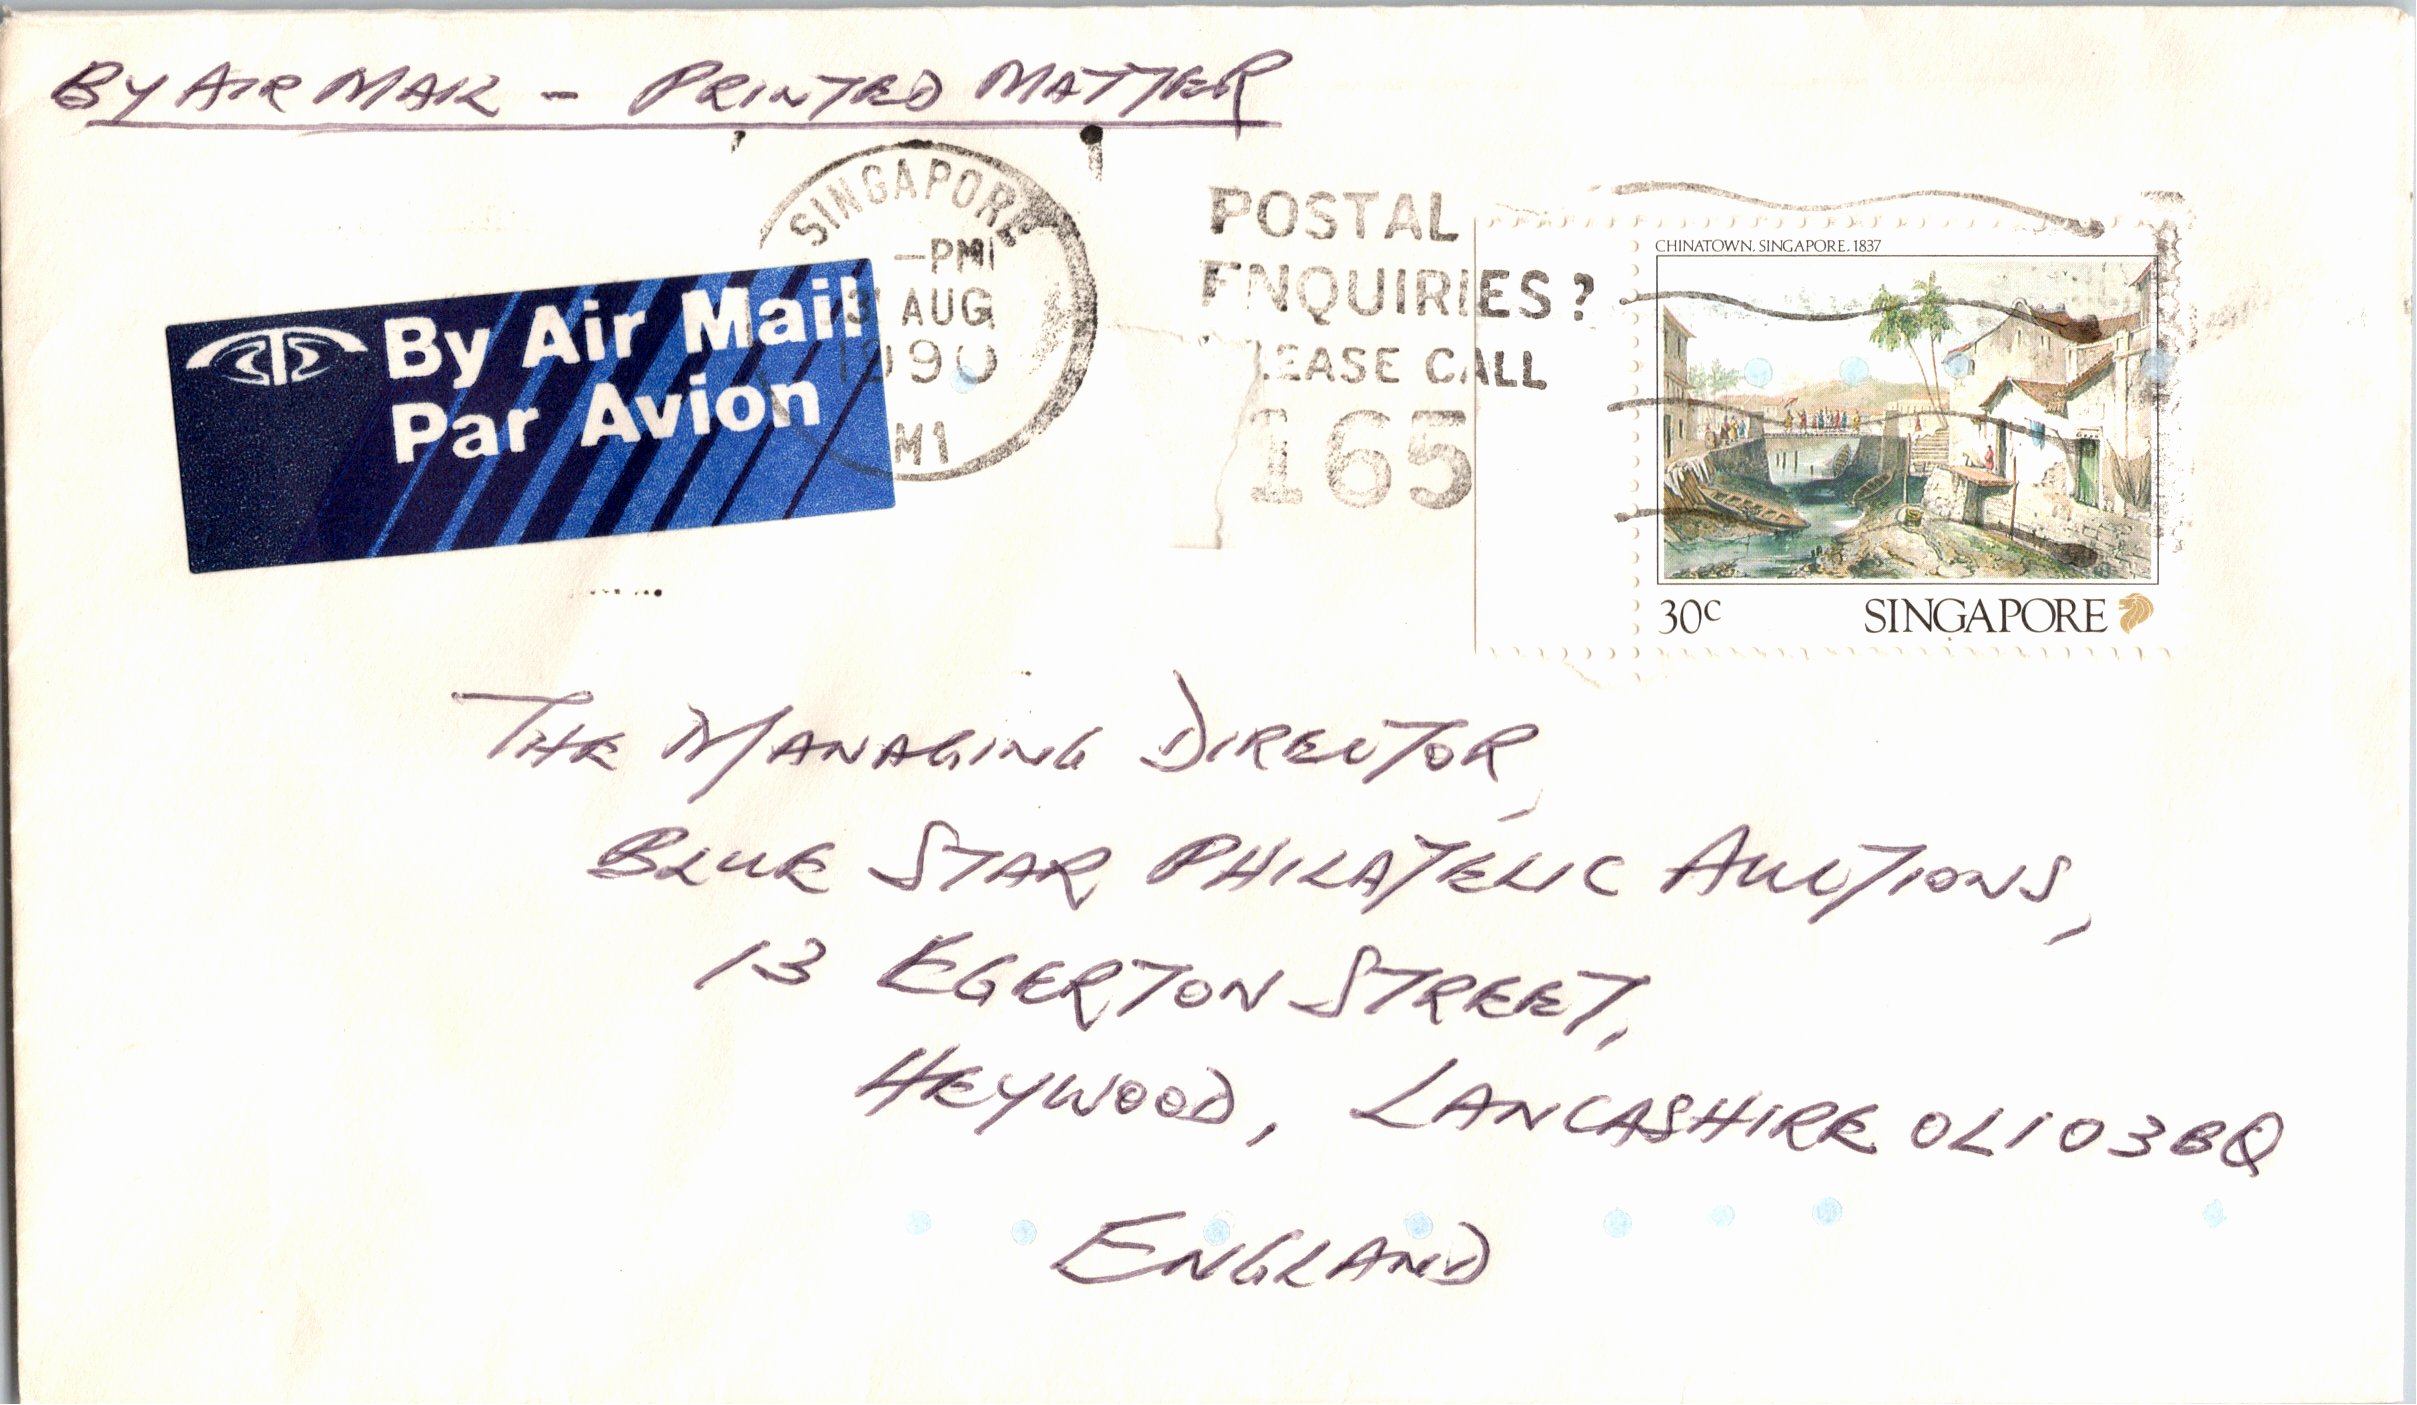 BY AIR MAIL - PRINTED MATTER
SINGAPORE
-PM
AUG
1990
M1
POSTAL
ENQUIRIES?
PLEASE CALL
165
By Air Mail
Par Avion
CHINATOWN, SINGAPORE, 1837
30c SINGAPORE
THE MANAGING DIRECTOR,
BLUE STAR PHILATELIC AUCTIONS,
13 EGERTON STREET,
HEYWOOD, LANCASHIRE OL10 3BQ
ENGLAND